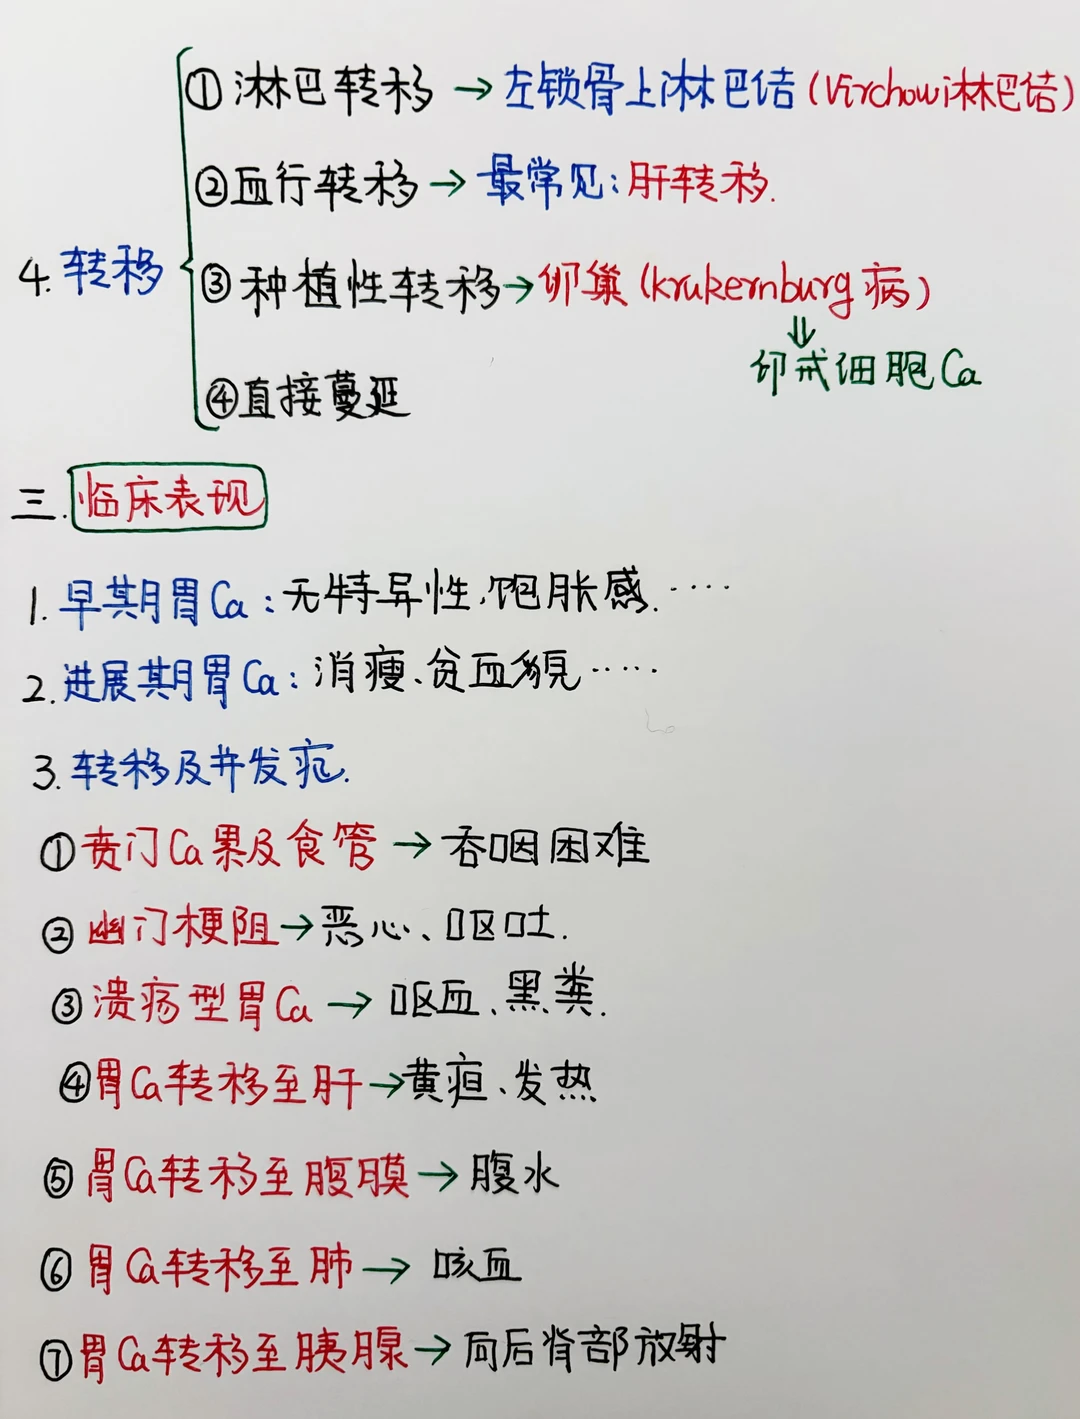 ①淋巴转移→左锁骨上淋巴结(Virchow淋巴结)
②血行转移→最常见:肝转移.
4.转移
③种植性转移→卵巢(krukernburg病)
⇓
印戒细胞Ca
④直接蔓延
三.临床表现
1.早期胃Ca:无特异性,饱胀感.····
2.进展期胃Ca:消瘦、贫血貌·····
3.转移及并发症.
①贲门Ca累及食管→吞咽困难
②幽门梗阻→恶心、呕吐.
③溃疡型胃Ca→呕血、黑粪.
④胃Ca转移至肝→黄疸、发热
⑤胃Ca转移至腹膜→腹水
⑥胃Ca转移至肺→咳血
⑦胃Ca转移至胰腺→向后背部放射